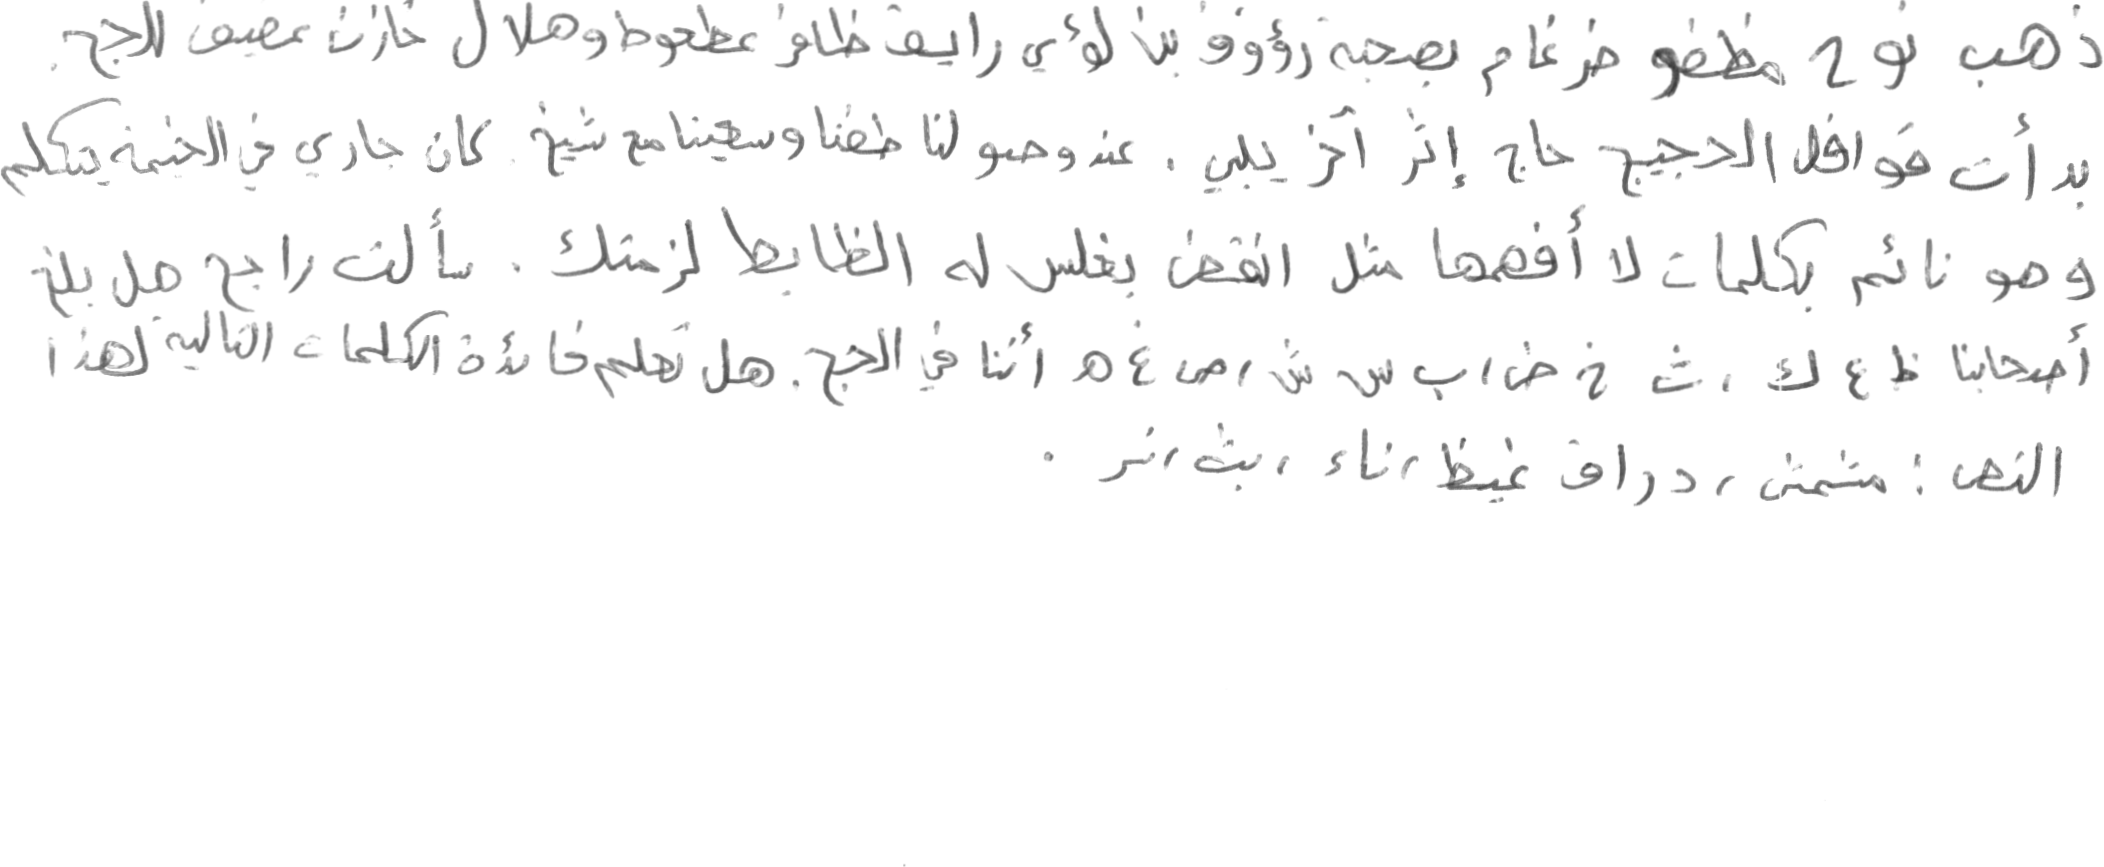 ذهب نوح مظفر ضرغام بصحبة رؤوف بن لؤي رايق ظافر عطعوط وهلال خازن عفيف للحج.
بدأت قوافل الحجيج حاج إثر آخر يلبي. عند وصولنا طفنا وسعينا مع شيخ. كان جاري في الخيمة يتكلم
وهو نائم بكلمات لا أفهمها مثل انقض بغلس له الظابط لزمتك. سألت راجح هل بلغ
أصحابنا ظ ع ك ، ث خ ض ، ب س ش ، ص غ ه أننا في الحج. هل تعلم فائدة الكلمات التالية لهذا
النص : مشمش ، دراق غيظ ، ناء ، بث ، نر .